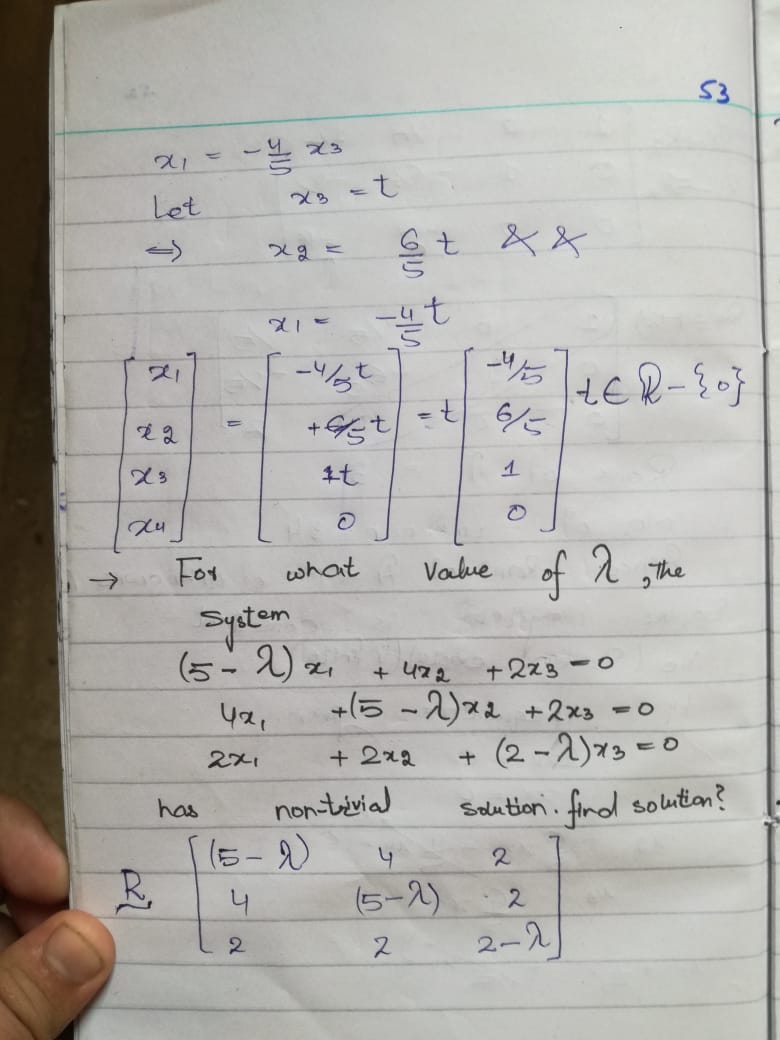 53
x₁ = -4/5 x₃
Let x₃ = t
⇔ x₂ = 6/5 t & &
x₁ = -4/5 t
[x₁ x₂ x₃ x₄] = [-4/5 t +6/5 t 1t 0] = t [-4/5 6/5 1 0] t ∈ R - {0}
→ For what value of λ, the
system
(5 - λ) x₁ + 4x₂ + 2x₃ = 0
4x₁ + (5 - λ) x₂ + 2x₃ = 0
2x₁ + 2x₂ + (2 - λ) x₃ = 0
has non-trivial solution. find solution?
R [(5 - λ) 4 2
4 (5 - λ) 2
2 2 2 - λ]